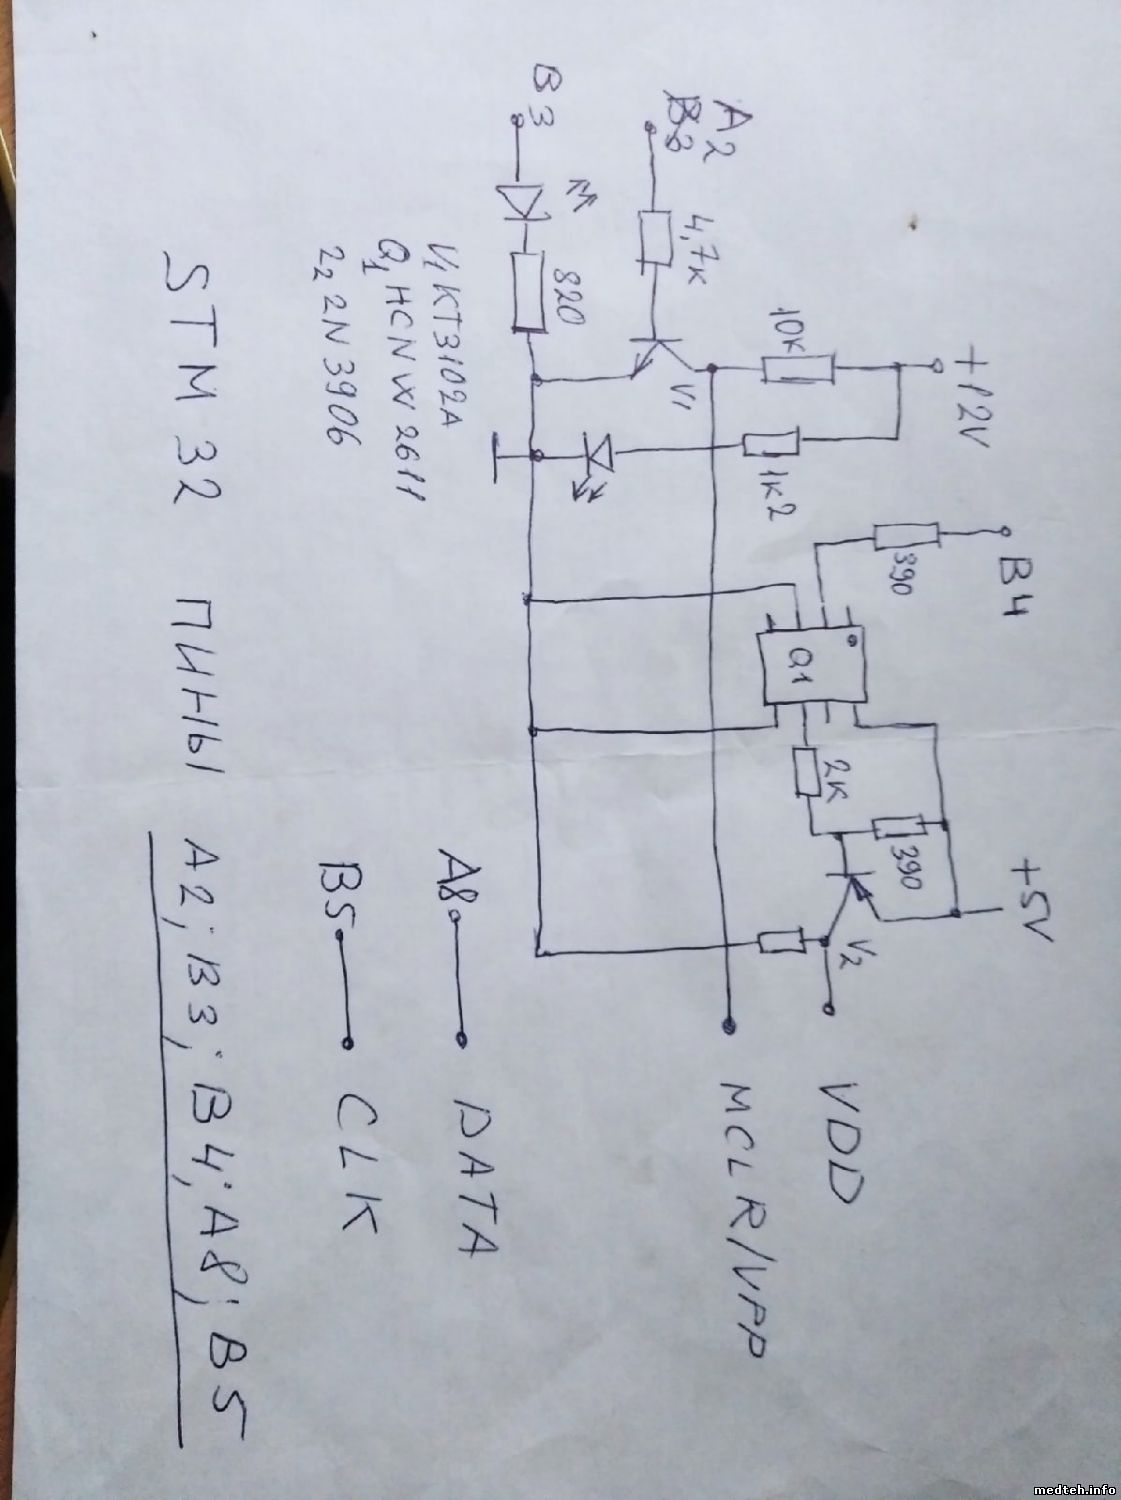 +12V
B4
+5V
A2
B3
10K
390
4,7K
1K2
Q1
2K
390
V1
V2
VDD
MCLR/VPP
B3
820
V1 KT3102A
Q1 HCNW2611
22 2N3906
A8
DATA
B5
CLK
STM 32 ПИНЫ A2; B3; B4; A8; B5
medteh.info